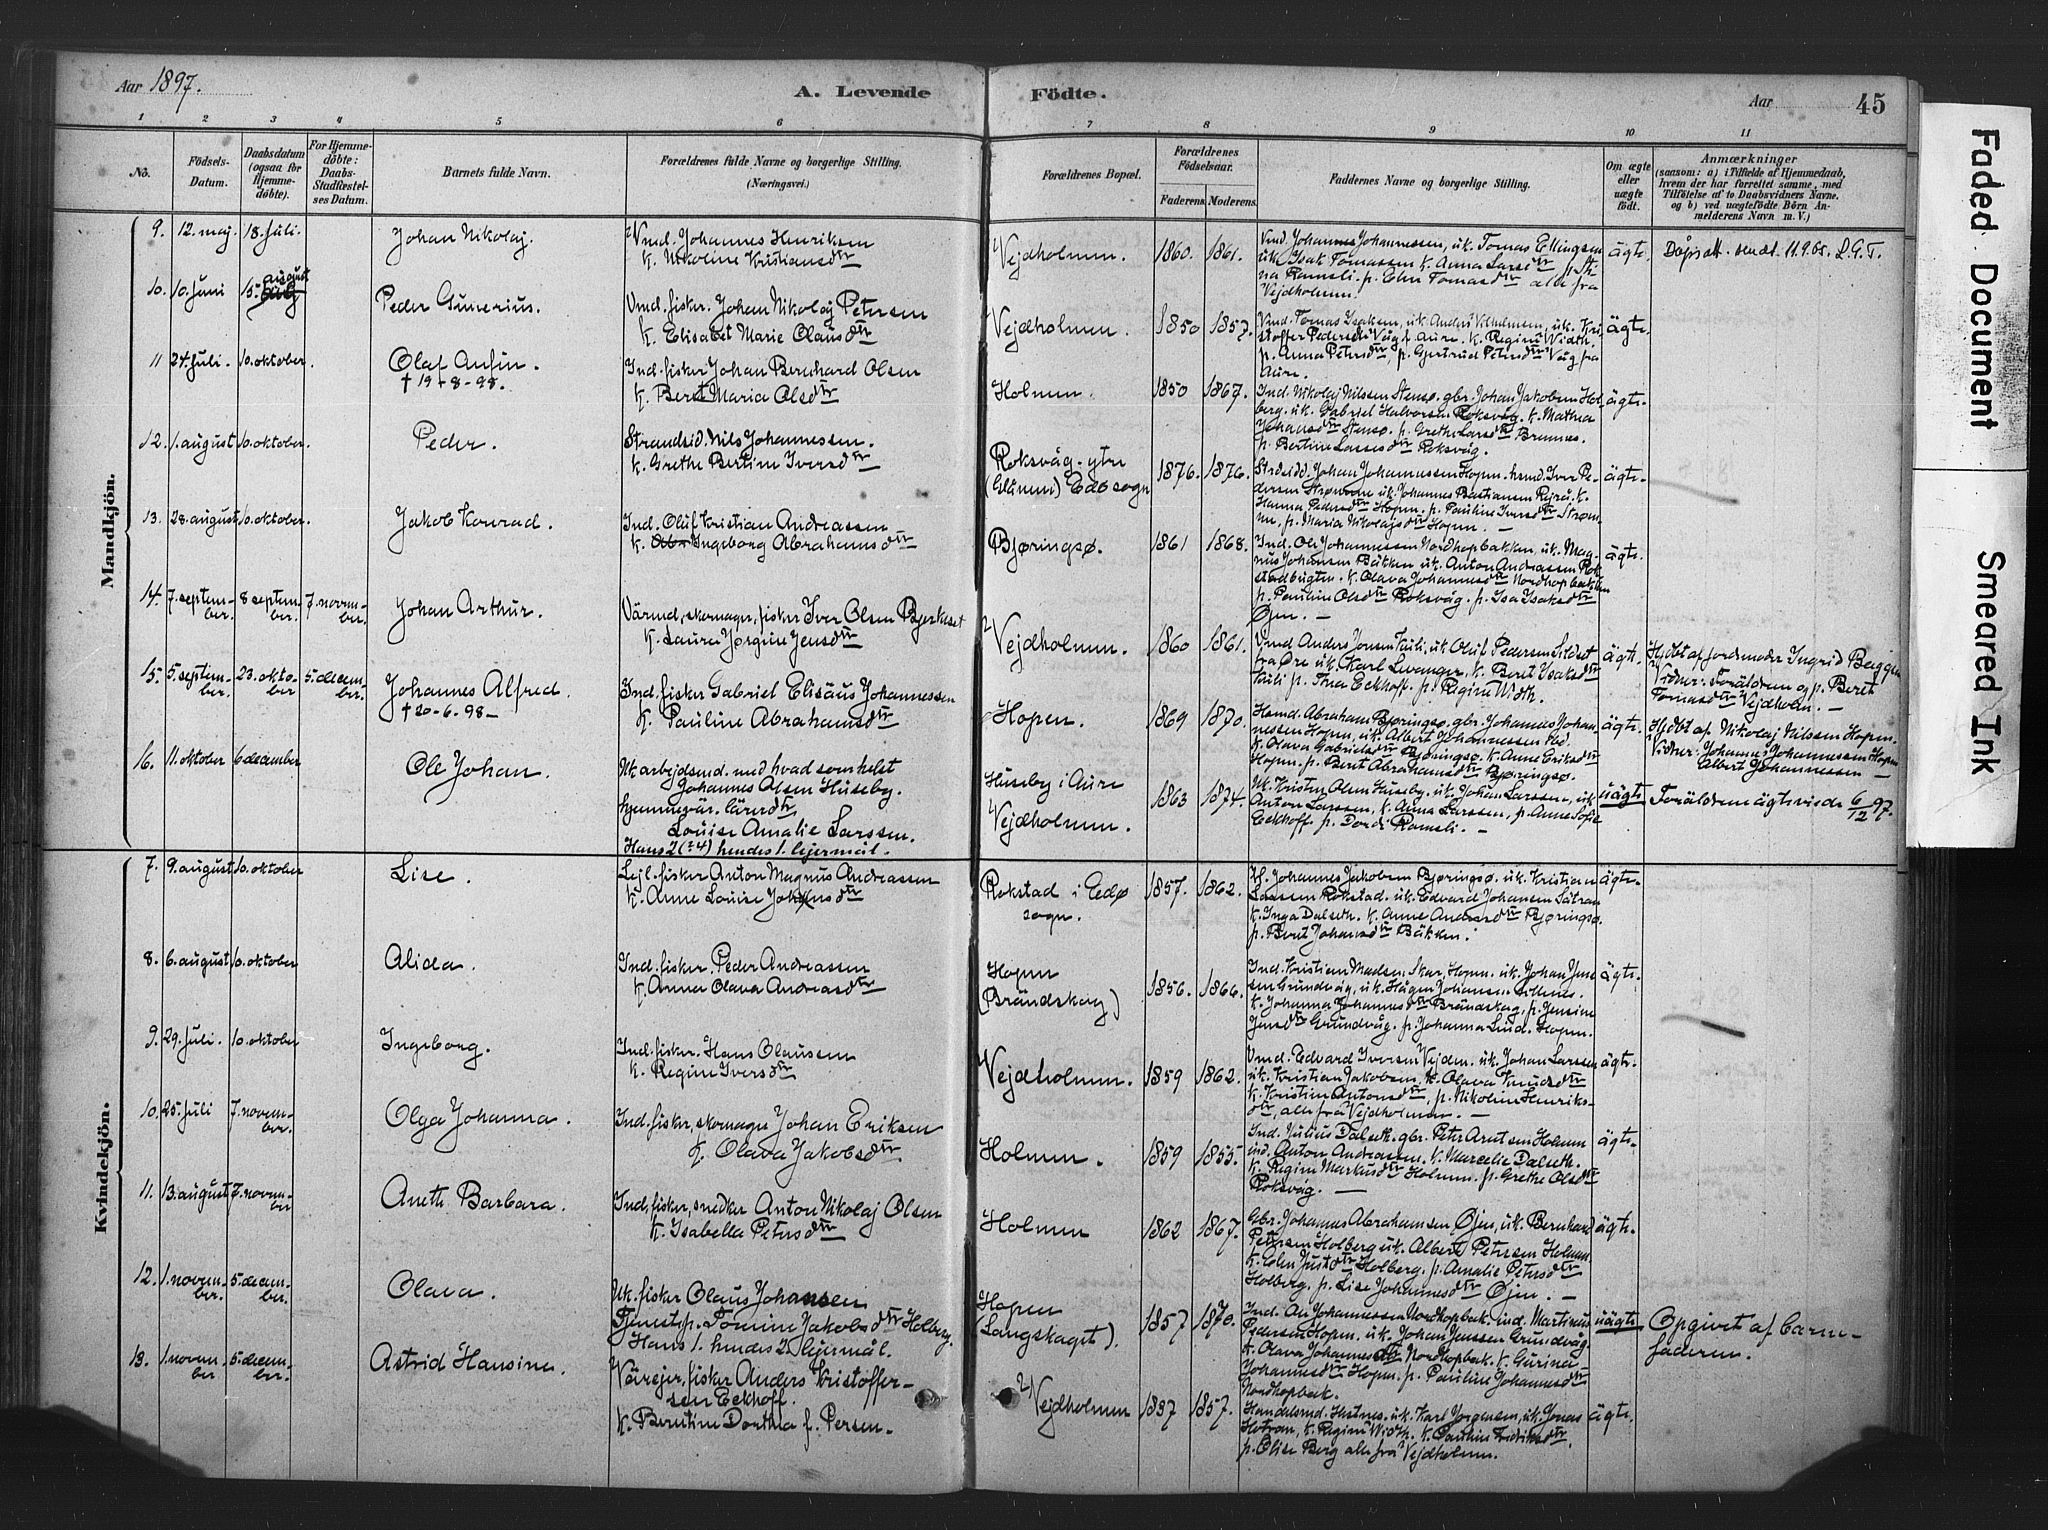 Aar 1897.
A. Levende Födte.
Aar
45
1 2 3 4 5 6 7 8 9 10 11
No.
Födsels-
Datum.
Daabsdatum
(ogsaa for
Hjemme-
døbte).
For Hjemme-
døbte:
Daabs-
Stadfæstel-
ses Datum.
Barnets fulde Navn.
Forældrenes fulde Navne og borgerlige Stilling.
(Næringsvei.)
Forældrenes Bopæl.
Forældrenes
Födselsaar.
Faderens. Moderens.
Faddernes Navne og borgerlige Stilling.
Om ægte
eller
uægte
födt.
Anmærkninger
(saasom: a) i Tilfælde af Hjemmedaab,
hvem der har forrettet samme, med
Tilföielse af to Daabsvidners Navne.
og b) ved uægtefödte Börn An-
melderens Navn m. V.)
Mandkjön.
9. 12. maj. 18. Juli.
Johan Nikolaj.
Vmd. Johannes Henriksen
K. Nikoline Kristiansdtr
Vejdholmen. 1860. 1861.
Vmd. Johannes Johannessen, uk. Tomas Ellingsen
uk. Isak Tomassen K. Anna Larsdtr p. Sti-
na Ramsli. p. Elen Tomasdtr alle fra
Vejdholmen.
ägte.
Dåpsatt. sendt 11.9.65. L.G.T.
10. 10. Juni 15. august
Peder Gunerius.
Vmd. fisker. Johan Nikolaj Petersen
K. Elisabet Marie Olausdtr
Vejdholmen. 1850 1857.
Vmd. Tomas Isaksen, uk. Andreas Vilhelmsen, uk. Kri-
stoffer Pedersen Våg f. Aure. K. Regine Width.
p. Anna Petersdtr, p. Gjertrud Petersdtr Våg fra
Aure.
ägte.
11 24. Juli. 10. oktober.
Olaf Anfin.
† 19-8-98.
Ind. fisker Johan Bernhard Olsen
K. Beret Maria Olsdtr
Holmen. 1850 1867.
Ind. Nikolaj Nilsen Stensø. gbr. Johan Jakobsen Hol-
berg. uk. Gabriel Halvorsen Roksvåg. K. Mathea
Johansdtr Stensø. p. Grethe Larsdtr Bremnes.
p. Bertine Larsesdtr Roksvåg.
ägte.
12. 1. august 10. oktober.
Peder.
Strandsid. Nils Johannessen.
K. Grethe Bertine Iversdtr
Roksvåg. ytre
(Glåmen) Edö sogn 1876. 1876.
Strdsidd. Johan Johannessen Hopen. hsmd. Iver Pe-
dersen Strømme uk. Johannes Bastiansen Rejrø. K.
Hanna Pedersdtr Hopen. p. Pauline Iversdtr Strøm-
me, p. Maria Nikolajsdtr Hopen. —
ägte.
13. 28. august 10. oktober.
Jakob Konrad.
Ind. Oluf Kristian Andreassen
K. Ingeborg Abrahamsdtr
Bjøringsø. 1861 1868.
Ind. Ole Johannessen Nordhopbakken, uk. Mag-
nus Johansen Bäkken uk. Anton Andreassen Rok-
stadbugten. K. Olava Johannesdtr Nordhopbakken
p. Pauline Olsdtr Roksvåg. p. Isa Isaksdtr
Øjen. —
ägte.
14. 7. septem-
ber. 8 septem-
ber. 7. novem-
ber.
Johan Arthur.
Värmd, skomager, fisker Iver Olsen Bjerkeset
K. Laura Jørgine Jensdtr
Vejdholmen. 1860 1861.
Vmd Anders Jonsen Tauli, uk Oluf Pedersen Sildset
fra Øre uk. Karl Levanger. K. Beret Isaksdtr
Tauli p. Thea Eckhoff. p. Regine Width.
ägt.
Hjdbt af jordmoder Ingrid Berggren
Vidner: Foräldrene og p. Beret
Tomasdtr Vejdholm. —
15. 5. septem-
ber. 23. okto-
ber 5. decem-
ber.
Johannes Alfred.
† 20-6-98 —
Ind. fisker Gabriel Elisäus Johannessen
K. Pauline Abrahamsdtr
Hopen. 1869 1870.
Hsmd. Abraham Bjøringsø. gbr. Johannes Johan-
nessen Hopen, uk. Albert Johannessen ibd.
K. Olava Gabrielsdtr Bjøringsø. K. Anne Eriksdtr
Hopen. p. Beret Abrahamsdtr Bjøringsø.
ägte.
Hjdbt af. Nikolaj Nilssen Hopen.
Vidner: Johannes Johannessen Hopen
Albert Johannessen —
16. 11. oktober 6 december
Ole Johan.
Uk. arbejdsmd. med hvad somhelst
Johannes Olsen Huseby.
hjemmevär. lärerdtr
Louise Amalie Larssen.
Hans 2 (:4) hendes 1. lejermål.
Huseby i Aure
Vejdholmen. 1863 1874.
Uk. Kristen Olsen Huseby. uk. Johan Larssen, uk
Anton Larssen, K. Anna Larssen, p. Anne Sofie
Eckhoff. p. Dordi Ramsli. —
uägte
Foräldrene ägteviede 6/12 97.
Kvindekjön.
7. 9. august 10. oktober
Lise.
Lejl. fisker Anton Magnus Andreassen
K. Anne Louise Johansdtr
Rokstad i Edö
sogn. 1857. 1862.
Johannes Jakobsen Bjøringsø. uk. Kristian
Larssen Rokstad. uk. Edvard Johansen Sätran
K. Inga Dalseth. K. Anne Andersdtr Bjøringsø.
p. Beret Johansdtr Bäkken.
ägte.
8. 6. august 10. oktober
Alida.
Ind. fisker. Peder Andreassen
K. Anna Olava Andreasdtr
Hopen
(Brändskag) 1856. 1866.
Ind. Kristian Madsen Skar, Hopen. uk. Johan Jen-
sen Grundvåg, uk. Hågen Johansen
K. Johanna Johannesdtr Brändskag. p. Jensine
Jensdtr Grundvåg. p. Johanna Lind. Hopen.
ägte.
9. 29. Juli. 10. oktober
Ingeborg.
Ind. fisker. Hans Olaussen
K. Regine Iversdtr
Vejdholmen. 1859 1862.
Vmd. Edvard Iversen Vejden. uk. Johan Larssen
uk. Kristian Jakobsen, K. Olava Knudsdtr
K. Kristine Antonsdtr, p. Nikoline Henriks-
dtr, alle fra Vejdholmen. —
ägte.
10. 25. Juli 7. novem-
ber.
Olga Johanna.
Ind. fisker, skomager Johan Eriksen
K. Olava Jakobsdtr
Holmen. 1859 1855.
Ind. Julius Dalseth. gbr. Peter Arntsen Holmen
ind. Anton Andreassen. K. Marcelie Dalseth.
K. Regine Markusdtr Holmen. p. Grethe Olsdtr
Roksvåg. —
ägte.
11. 13. august 7. novem-
ber
Aneth Barbara.
Ind, fisker, snedker Anton Nikolaj Olsen
K. Isabella Petersdtr
Holmen 1862 1867.
Gbr. Johannes Abrahamsen Øjen, uk. Bernhard
Petersen Holberg uk. Albert Petersen Holmen.
K. Elen Justdtr Holberg. p. Amalie Petersdtr
Holberg. p. Lise Johannesdtr Øjen. —
ägte.
12. 1. novem-
ber. 5. decem-
ber.
Olava.
Uk. fisker Olaus Johansen
Tjenestp. Tomine Jakobsdtr Holberg.
Hans 1. hendes 2. lejermål.
Hopen
(Langskaget). 1857 1870.
Ind. Johannessen Nordhopbak. ind. Martinus
Pedersen Hopen. uk. Johan Jenssen Grundvåg
K. Olava Johannesdtr Nordhopbak. K. Gurina
Johannesdtr Hopen. p. Pauline Johannesdtr
Nordhopbak.
uägte
Opgivet af barne-
faderen.
13. 1. novem-
ber 5. decem-
ber.
Astrid Hansine.
Värejer, fisker Anders Kristoffer-
sen Eckhoff.
K. Berntine Dorthea f. Persen.
Vejdholmen 1837 1857.
Handelsmd. Hestnes. uk. Karl Jørgensen, uk. Jonas
Hotran, K. Regine Width. K. Pauline Fredriksdtr.
p. Elise Berg alle fra Vejdholmen.
ägte.
Faded Document
Smeared Ink